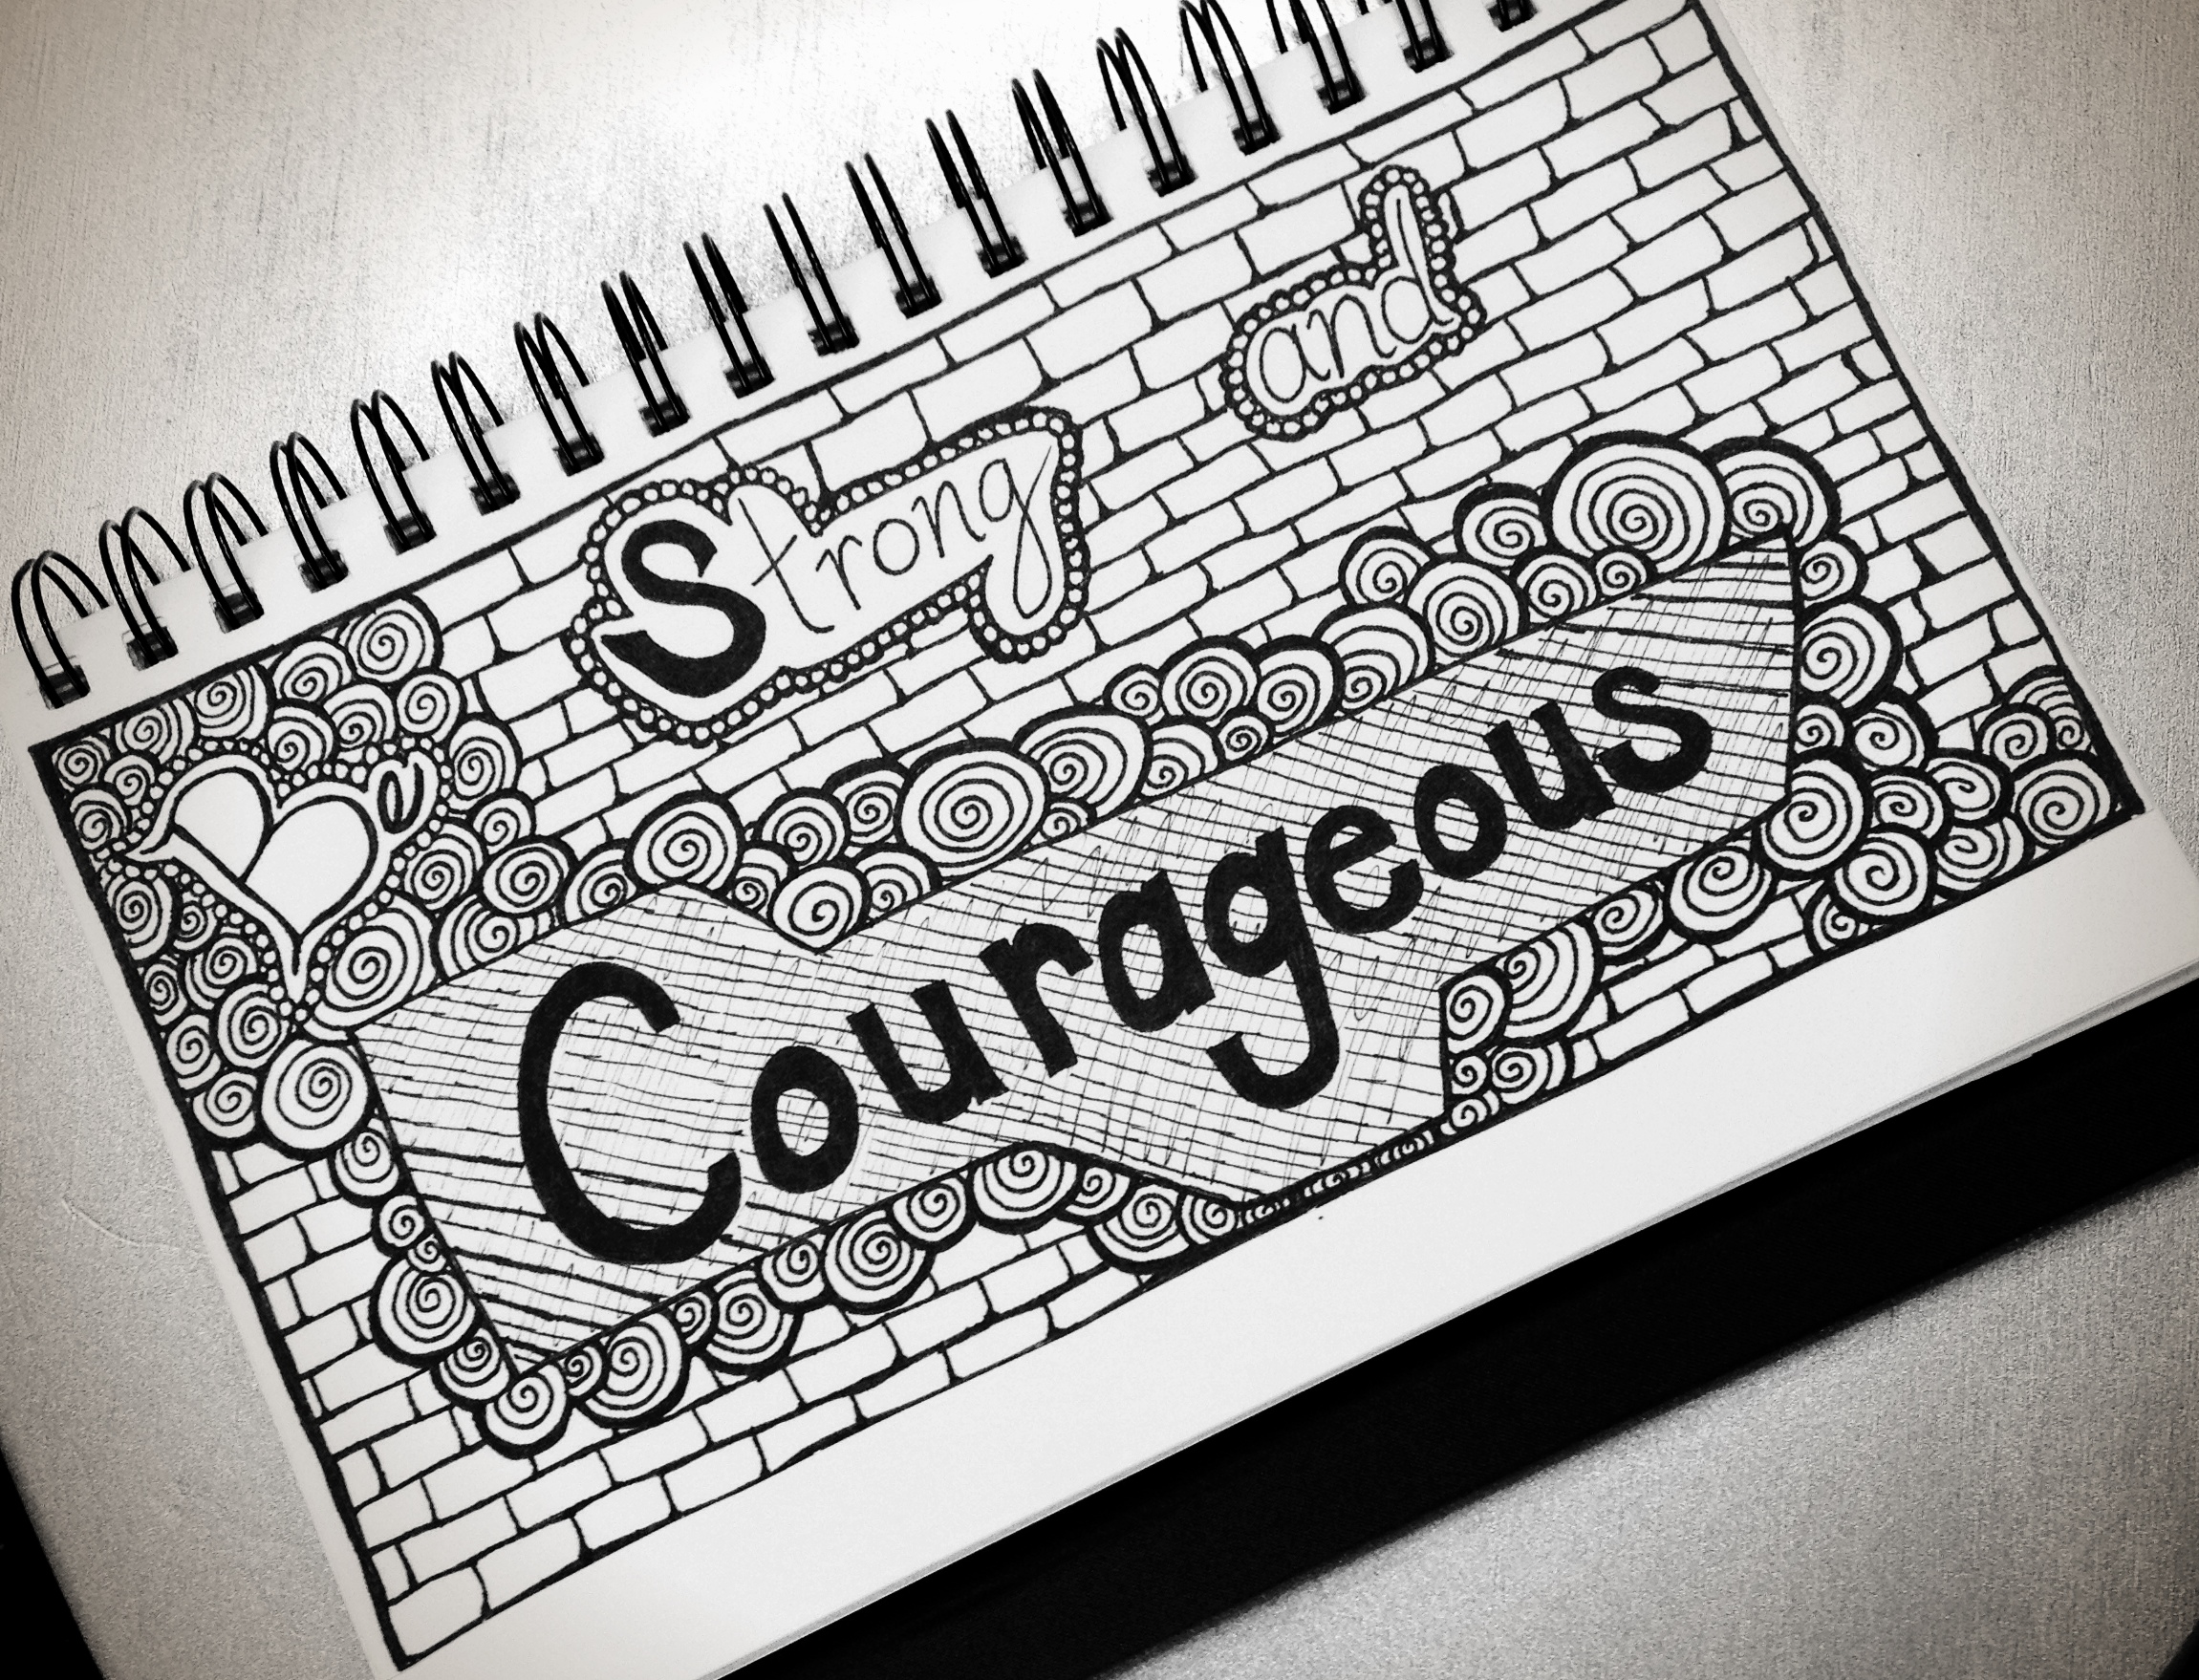 Strong and
Courageous